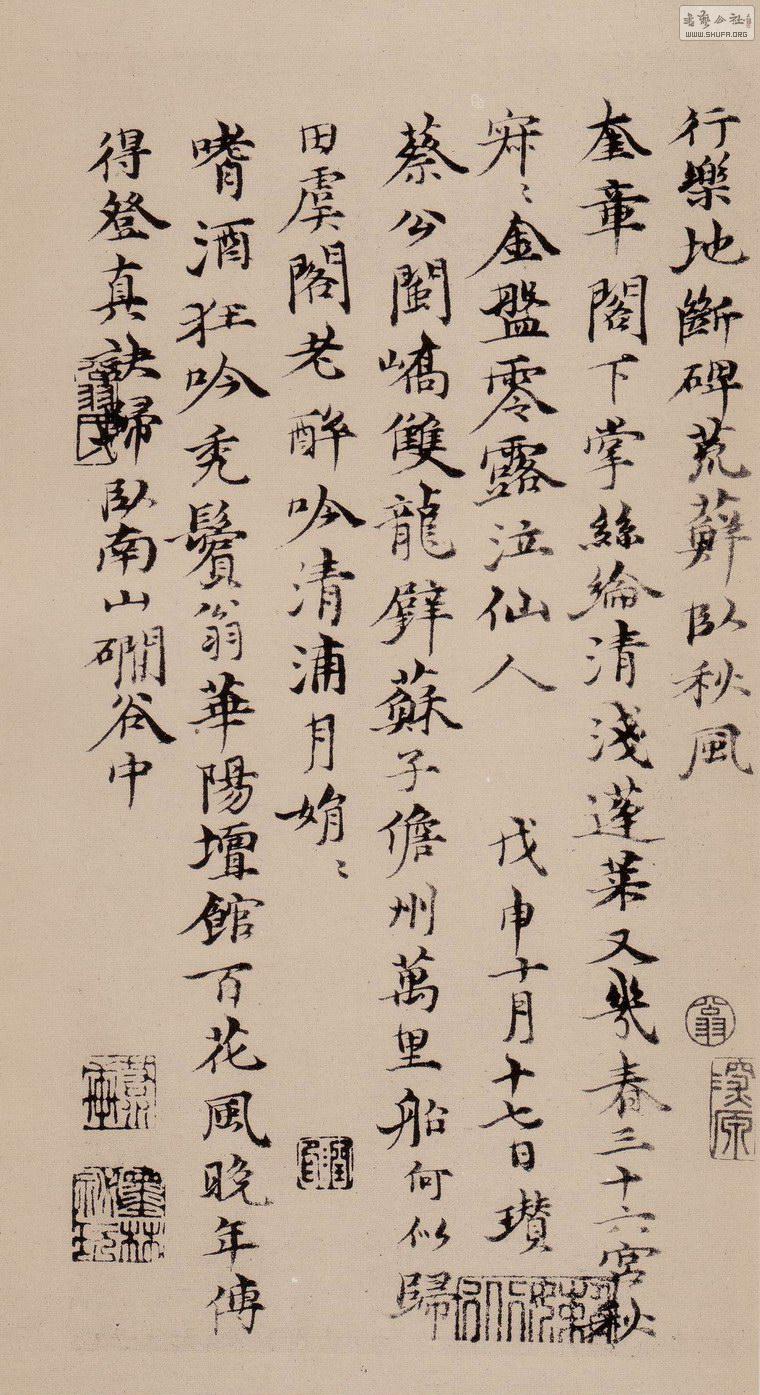 行樂地斷碑荒蘚臥秋風
奎章閣下掌絲綸清淺蓬萊又幾春三十六宮秋
寐〻金盤零露泣仙人 戊申十月十七日瓚
蔡公閩嶠雙龍璧蘇子儋州萬里船何似歸
田虞閣老醉吟清浦月娟〻
嗜酒狂吟禿鬢翁華陽壇館百花風晚年傳
得登真訣歸臥南山磵谷中
書藝公社
WWW.SHUFA.ORG